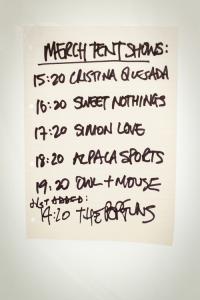 MERCH TENT SHOWS:
15:20 CRISTINA QUESADA
16:20 SWEET NOTHINGS
17:20 SIMON LOVE
18:20 ALPACA SPORTS
19:20 OWL + MOUSE
JUST ADDED:
14:20 THE POPGUNS